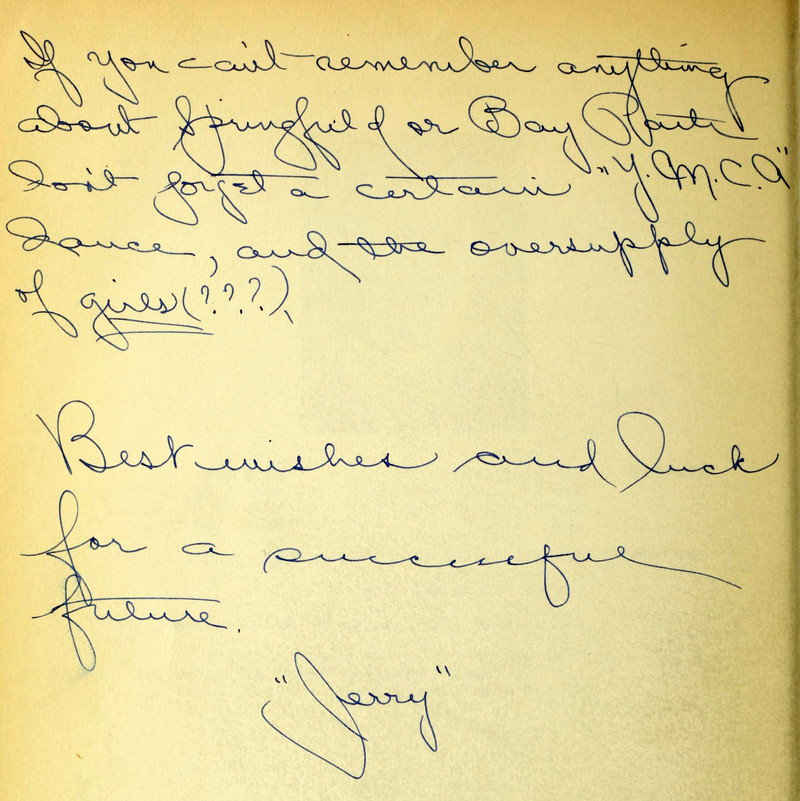 If you can't remember anything
about Springfield or Bay Path
don't forget a certain "Y.M.C.A"
dance, and the oversupply
of girls(???).
Best wishes and luck
for a successful
future.
"Jerry"